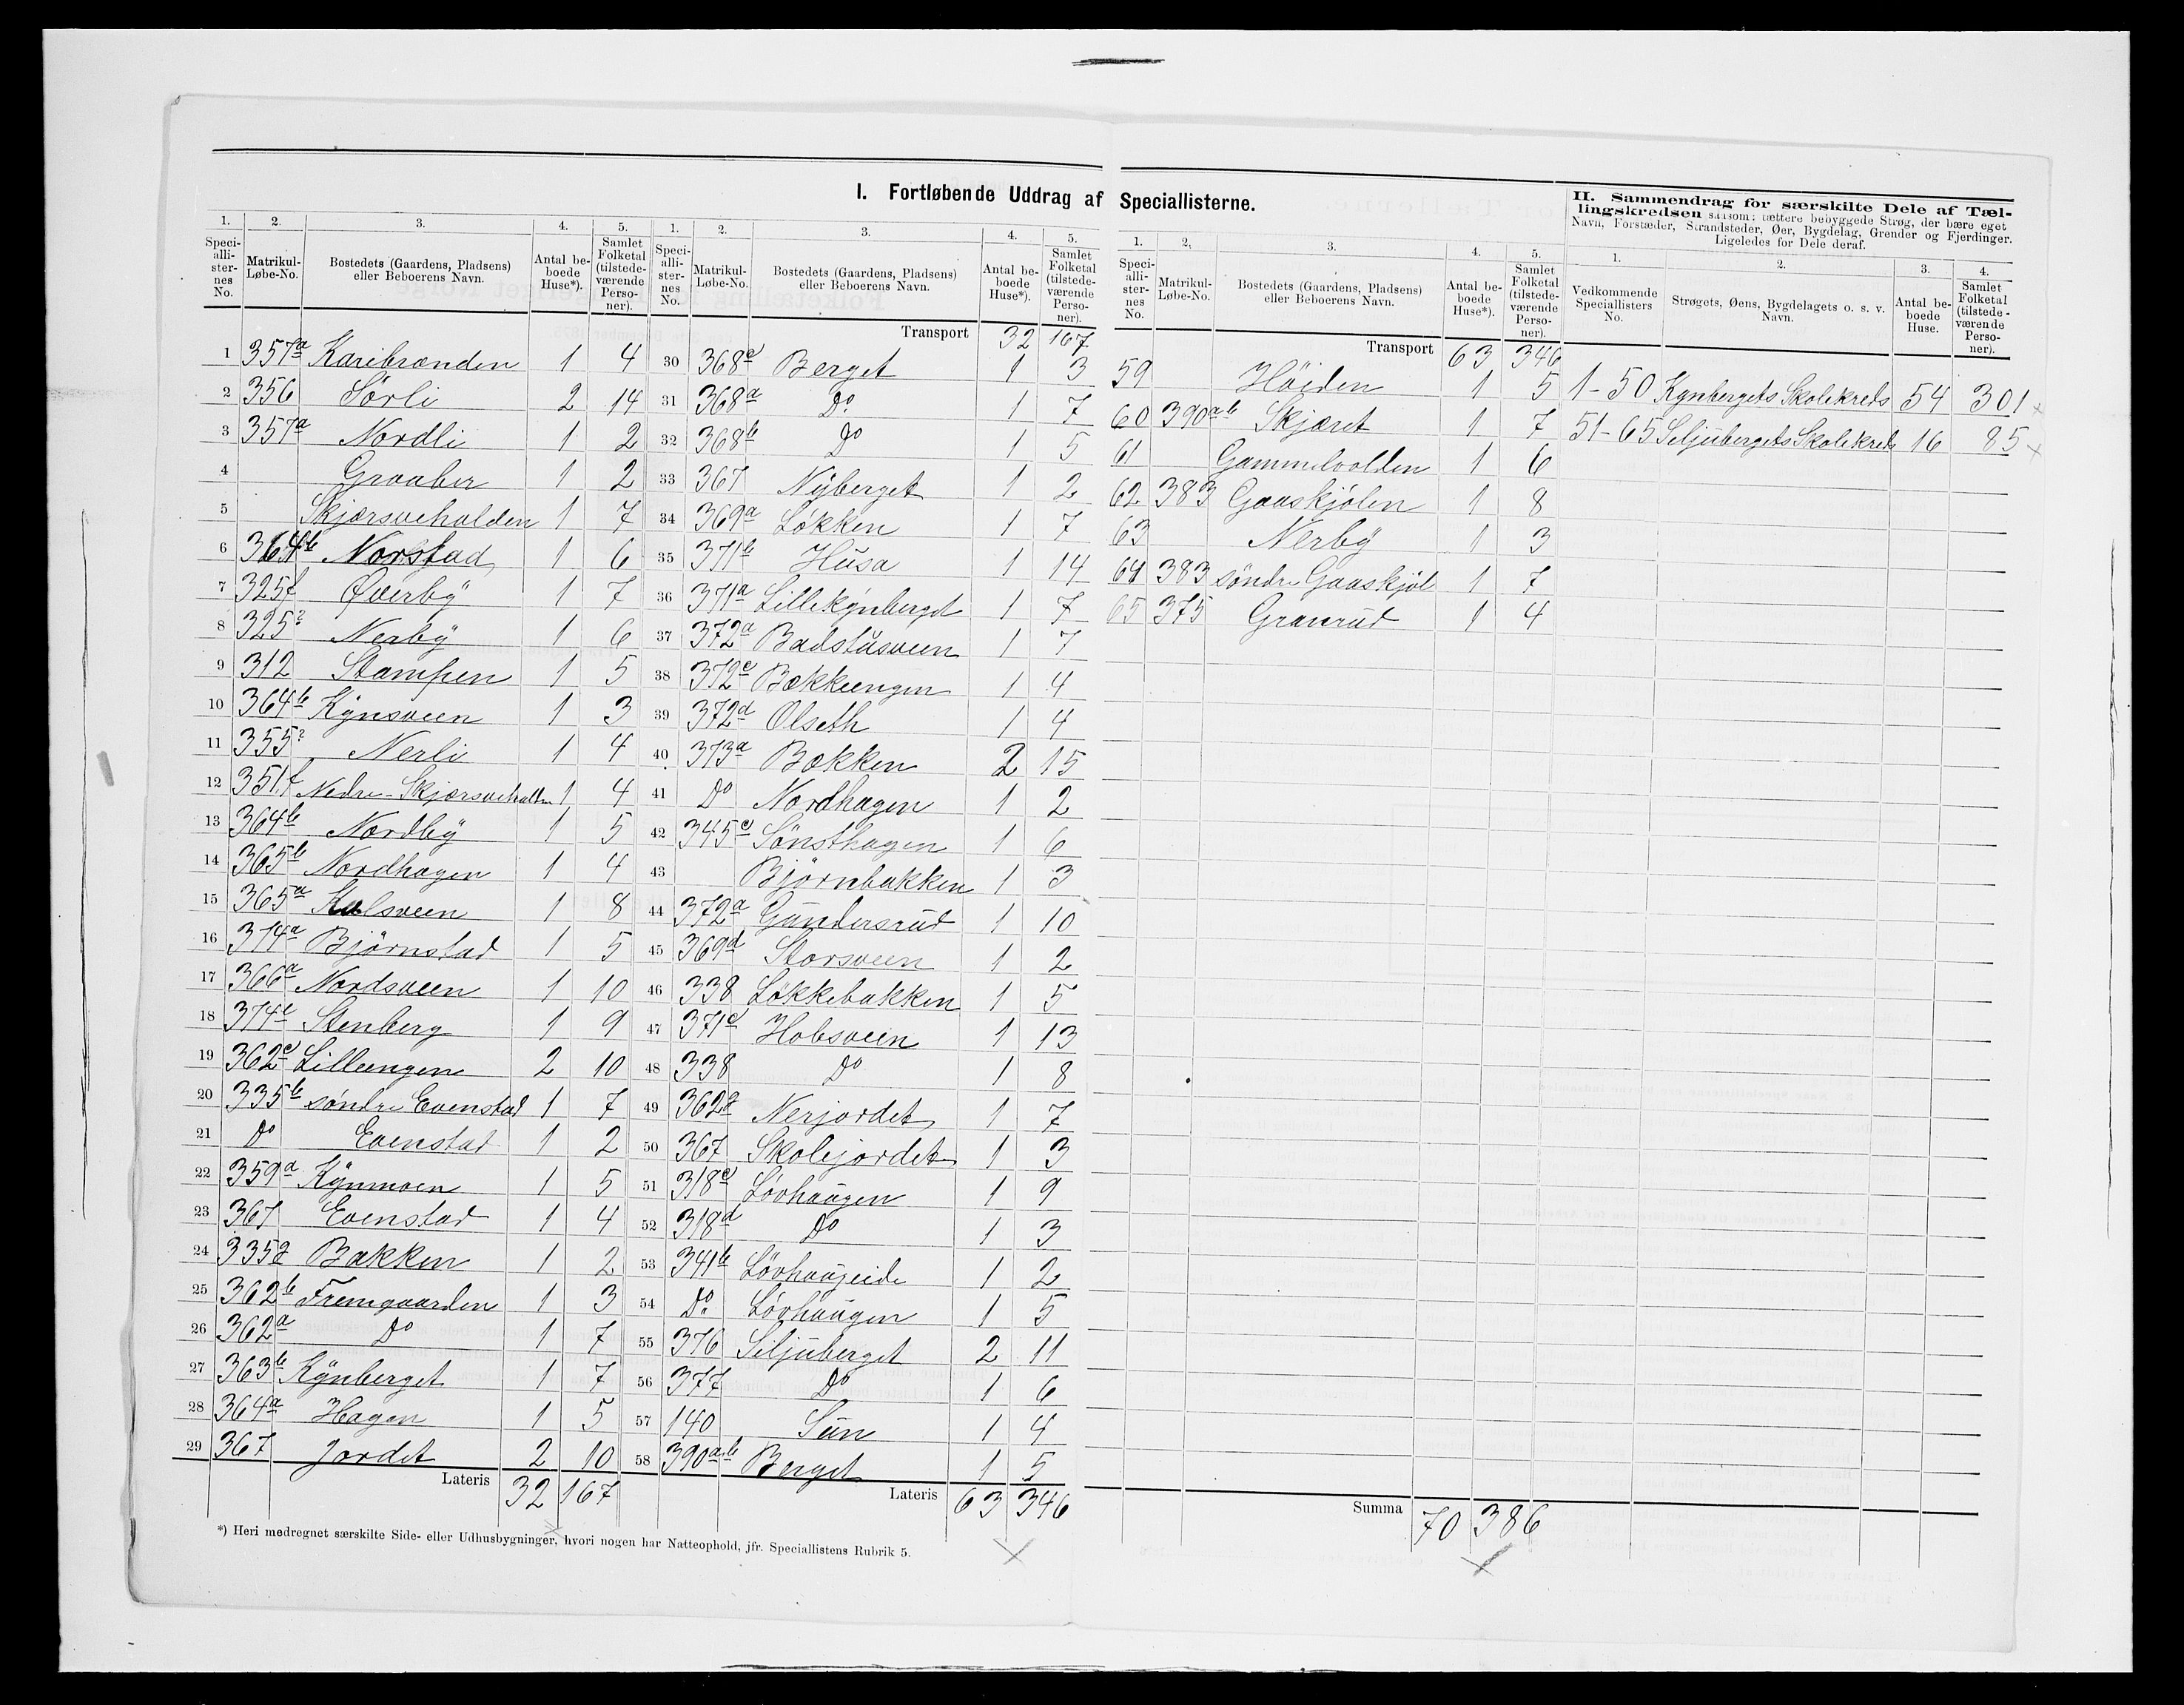 I. Fortløbende Uddrag af Speciallisterne.
1. 2. 3. 4. 5.
Speci-alli-ster-nes No. Matrikul-Løbe-No. Bostedets (Gaardens, Pladsens) eller Beboerens Navn. Antal be-boede Huse*). Samlet Folketal (tilstede-værende Perso-ner).
1 357a Karibrænden 1 4
2 356 Sørli 2 14
3 357a Nordli 1 2
4 Graaber 1 2
5 Skjærsvehalden 1 7
6 364b Norstad 1 6
7 325f Øverby 1 7
8 325? Nerby 1 6
9 312 Stampen 1 5
10 364b Kynsveen 1 3
11 355? Nerli 1 4
12 351f Nedre-Skjærsvehalden 1 4
13 364b Nordby 1 5
14 365b Nordhagen 1 4
15 365a Kulsveen 1 8
16 374a Bjørnstad 1 5
17 366a Nordsveen 1 10
18 374e Stenberg 1 9
19 362c Lilleengen 2 10
20 335b søndre Evenstad 1 7
21 Do Evenstad 1 2
22 359a Kynmoen 1 5
23 367 Evenstad 1 4
24 335a Bakken 1 2
25 362b Fremgaarden 1 3
26 362a Do 1 7
27 363b Kynberget 1 7
28 364a Hagen 1 5
29 367 Jordet 2 10
Lateris 32 167
1. 2. 3. 4. 5.
Speci-alli-ster-nes No. Matrikul-Løbe-No. Bostedets (Gaardens, Pladsens) eller Beboerens Navn. Antal be-boede Huse*). Samlet Folketal (tilstede-værende Perso-ner).
Transport 32 167
30 368c Berget 1 3
31 368a Do. 1 7
32 368b Do 1 5
33 367 Nyberget 1 2
34 369a Løkken 1 7
35 371b Husa 1 14
36 371a Lillekynberget 1 7
37 372a Badstusveen 1 7
38 372c Bækkeengen 1 4
39 372d Olseth 1 4
40 373a Bækken 2 15
41 Do Nordhagen 1 2
42 345c Sønsthagen 1 6
43 Bjørnbakken 1 3
44 372a Gundersrud 1 10
45 369d Storsveen 1 2
46 338 Løkkebakken 1 5
47 371c Hobsveen 1 13
48 338 Do 1 8
49 362a Nerjordet 1 7
50 367 Skolejordet 1 3
51 318c Løvhaugen 1 9
52 318d Do 1 3
53 341b Løvhaugeide 1 2
54 Do. Løvhaugen 1 5
55 376 Siljuberget 2 11
56 377 Do 1 6
57 140 Sün 1 4
58 390a.b Berget 1 5
Lateris 63 346
*) Heri medregnet særskilte Side- eller Udhusbygninger, hvori nogen har Natteophold, jfr. Speciallistens Rubrik 5.
1. 2. 3. 4. 5.
Speci-alli-ster-nes No. Matrikul-Løbe-No. Bostedets (Gaardens, Pladsens) eller Beboerens Navn. Antal be-boede Huse*). Samlet Folketal (tilstede-værende Perso-ner).
Transport 63 346
59 Høiden 1 5
60 390ab Skjæret 1 7
61 Gammelvolden 1 6
62 383 Gaaskjølen 1 8
63 Nerby 1 3
64 383 søndre Gaaskjøl 1 7
65 375 Granrud 1 4
Summa 70 386
II. Sammendrag for særskilte Dele af Tæl-
lingskredsen saasom: tættere bebyggede Strøg, der bære eget
Navn, Forstæder, Strandsteder, Øer, Bygdelag, Grender og Fjerdinger.
Ligeledes for Dele deraf.
1. 2. 3. 4.
Vedkommende Speciallisters No. Strøgets, Øens, Bygdelagets o. s. v. Navn. Antal be-boede Huse. Samlet Folketal (tilstede-værende Perso-ner).
1-50 Kynbergets Skolekreds 54 301
51-65 Seljubergets Skolekreds 16 85